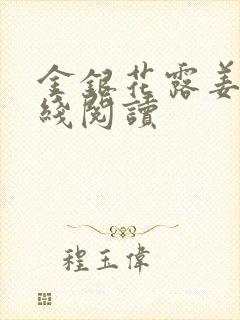 金銀花露姜
綫閱讀
程玉偉